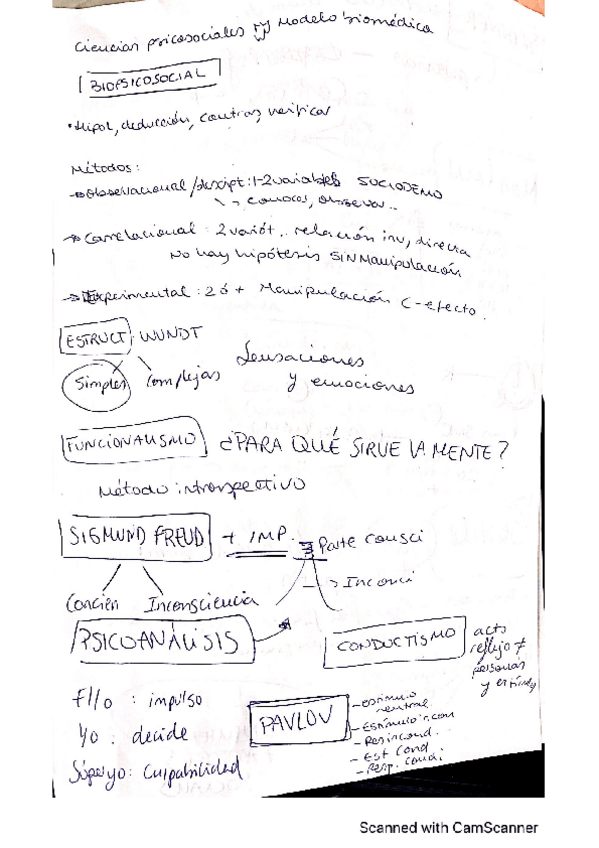 Ciencias psicosociales Modelo biomédica
BIOPSICOSOCIAL
• Hipot, deducción, contras, verificar
Métodos:
→ Observacional/descript: 1-2 variables SOCIODEMO
↳ conocer, observar..
→ Correlacional: 2 variat.. relación inv, directa
No hay hipótesis SIN Manipulación
→ Experimental: 2 ó + Manipulación C-efecto.
ESTRUCT: WUNDT
Simples Complejas
Sensaciones
y emociones
FUNCIONALISMO ¿PARA QUÉ SIRVE LA MENTE?
Método introspectivo
SIGMUND FREUD + IMP.
Parte consci
→ Inconci
Concien Inconsciencia
PSICOANÁLISIS
CONDUCTISMO
acts
reflejo ≠
personas
y
Ello : impulso
Yo : decide
Súperyo: Culpabilidad
PAVLOV
- estimulo
neutral
- Estímulo incon
- Res incond.
- Est Cond
- Resp. condi
Scanned with CamScanner